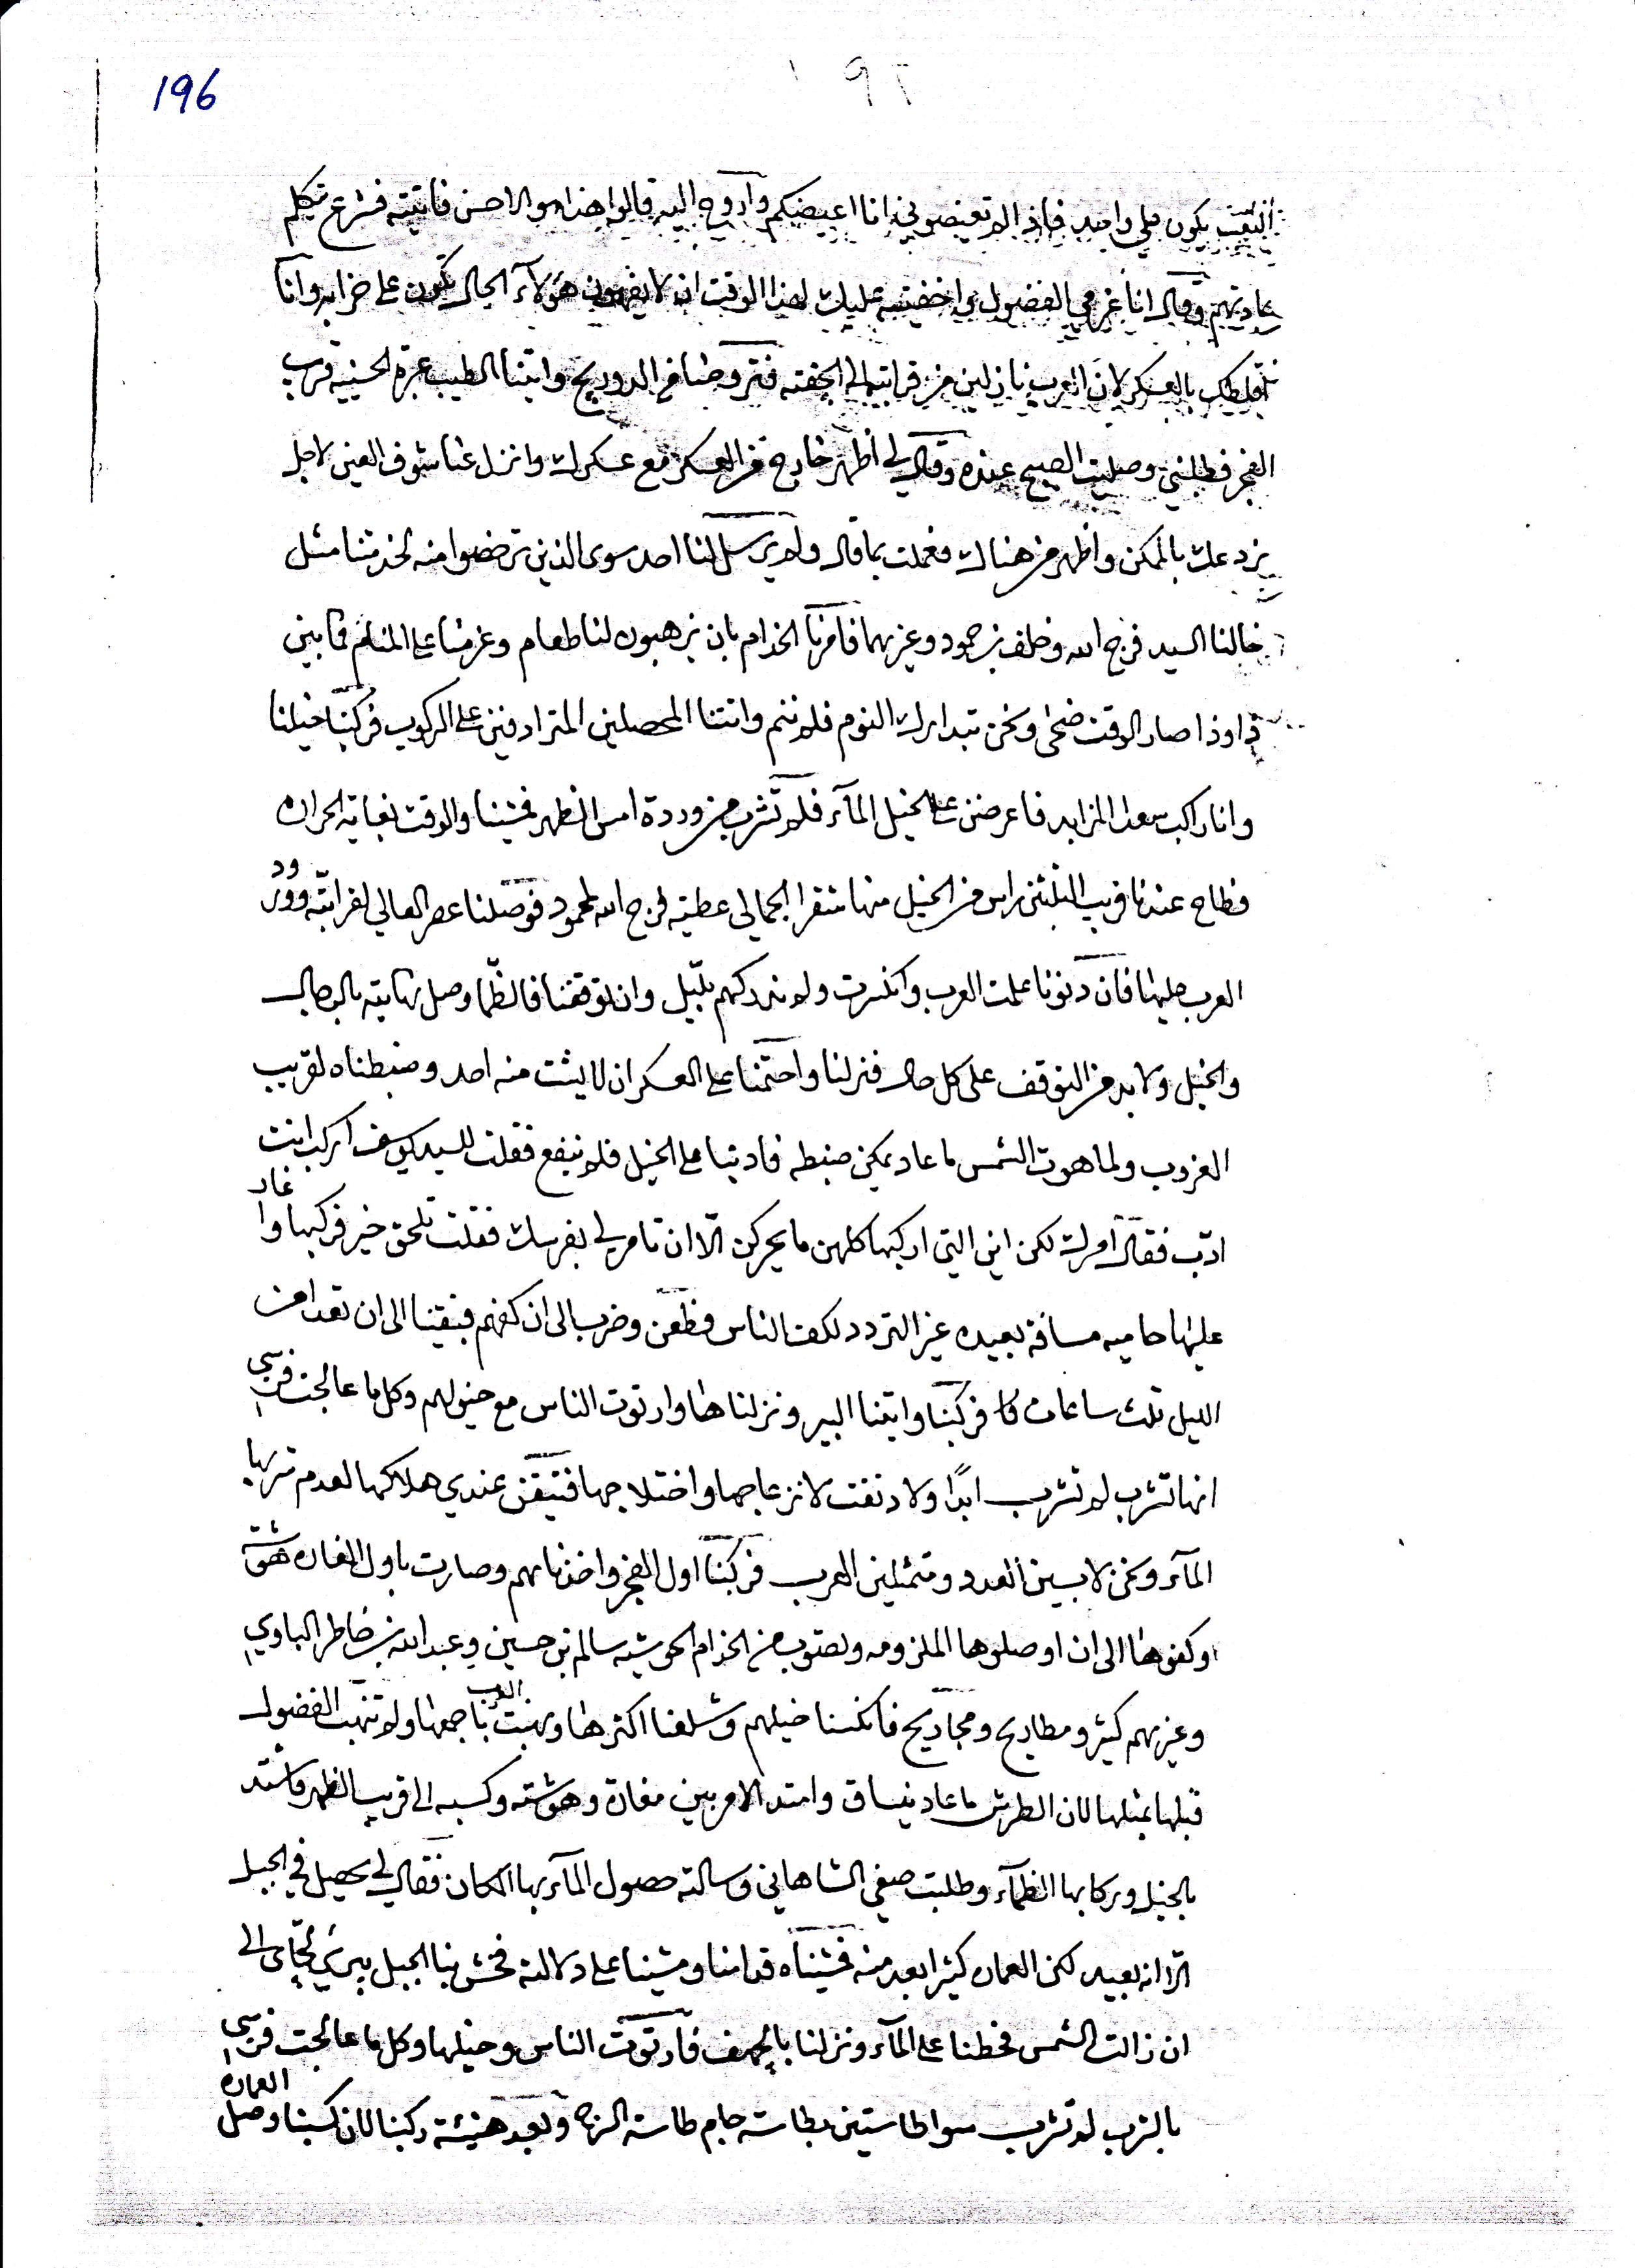 196
١٩٦
التعب يكون على واحد فاذا لم تعيضوني انا اعيضكم وآروح اليه قالوا هذا هو الاحسن فاتيته فشرع يتكلم
عادتهم وقال انا غرضي الفضول واخفيته عليك لهذا الوقت ان لا يفهمون هؤلاء الحال يكون على خرابه وانا
بالعسكر لان العرب نازلين من قرانبه الى الجفنه فتروحنا من الدوريج واتينا الطيب عبرة الحسينيه قرب
الفجر فطلبني وصليت الصبح عنده وقال لي اظهر خارج من العسكر مع عسكرك وانزل عنا شوف العين لاجل
بالمكن واظهر من هناك فعملت بما قال ولم يرسل لنا احد سوى الذين ترخصوا منه لخدمتنا مثل
خالنا السيد فرج الله وخلف بن حمود وغيرهما فامرنا الخدام بان يرهبون لنا طعام وعزمنا على المنام فما بين
ذا وذا صار الوقت ضحى ونحن نتدارك النوم فلم ننم واتتنا المحصلين المترادفين على الركوب فركبنا خيلنا
وانا راكب سعدا الزايد فاعرضن على الخيل المآء فلم تشرب من وردة امس الظهر فمشينا والوقت بغاية الحراره
فطاح عندنا قريب الثلثين راس من الخيل منها شقرا الجمالي عطية فرج الله لمحمود فوصلنا عصر العالي لقرانبّه وورد
العرب عليها فان دنونا علمت العرب وانكسرت ولم ندركهم بليل وان توقفنا فالظما وصل نهايته بالرجال
والخيل ولا بد من التوقف على كل حال فنزلنا واحتمنا على العسكر ان لا يشت منه احد وضبطناه لقريب
الغروب ولما هوت الشمس ما عاد يمكن ضبطه فادبنا على الخيل فلم ينفع فقلت للسيد يوسف اركب انت
ادّب فقال امرك لكن اين التي اركبها كلهن ما يحركن الّا ان تامر لي بفرسك فقلت تلحق خير فركبها واغار
عليها حاميه مسافة بعيده غير التردد لكف الناس فطعن وضرب الى ان كفهم فبقينا الى ان تعدا من
الليل ثلث ساعات فركبنا واتينا البير ونزلناها وارتوت الناس مع خيولهم وكل ما عالجت فرسي
انها تشرب لم تشرب ابدًا ولا دنقت لانزعاجها واختلاجها فتيقن عندي هلاكها لعدم شربها
المآء ونحن لابسين العدد ومتمثلين الحرب فركبنا اول الفجر واخذناهم وصارت باول الغاره هوشة
وكفوها الى ان اوصلوها الملزومه وتصوب من الخدام الحوشيه سالم بن حسين وعبد الله بن خاطر الباوي
وغيرهم كثير ومطاريح ومجاريح فانكسنا خيلهم وشلعنا اكثرها ونهبت العرب باجمعها ولم تنهب الفضول
قبلها بمثلها لان الطرش ما عاد ينساق وامتد الامر بين مغارة وهوشة وكسبه الى قريب الظهر واشتد
بالخيل وركابها الظمآء وطلبت صفي الشاهاني وسالته حصول المآء بها المكان فقال لي يحصل في الجبل
الّا انه بعيد لكن العماره كثير ابعد منه فمشيناه قدامنا ومشينا على دلالته فخش بنا الجبل الى
ان زالت الشمس فحطنا على المآء ونزلنا بالجهف فارتوت الناس وخيلها وكل ما عالجت فرسي
بالشرب لم تشرب سوا طاستين بطاسة جام طاسة الزره وبعد هنيئة ركبنا لان كسبنا وصل العماره